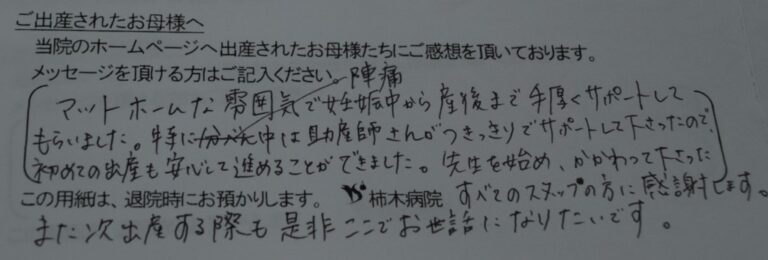 ご出産されたお母様へ
当院のホームページへ出産されたお母様たちにご感想を頂いております。
メッセージを頂ける方はご記入ください。
陣痛
マットホームな雰囲気で妊娠中から産後まで手厚くサポートして
もらいました。特に中は助産師さんがつきっきりでサポートして下さったので、
初めての出産も安心して進めることができました。先生を始め、かかわって下さった
この用紙は、退院時にお預かりします。 柿木病院 すべてのスタッフの方に感謝します。
また次出産する際も是非ここでお世話になりたいです。